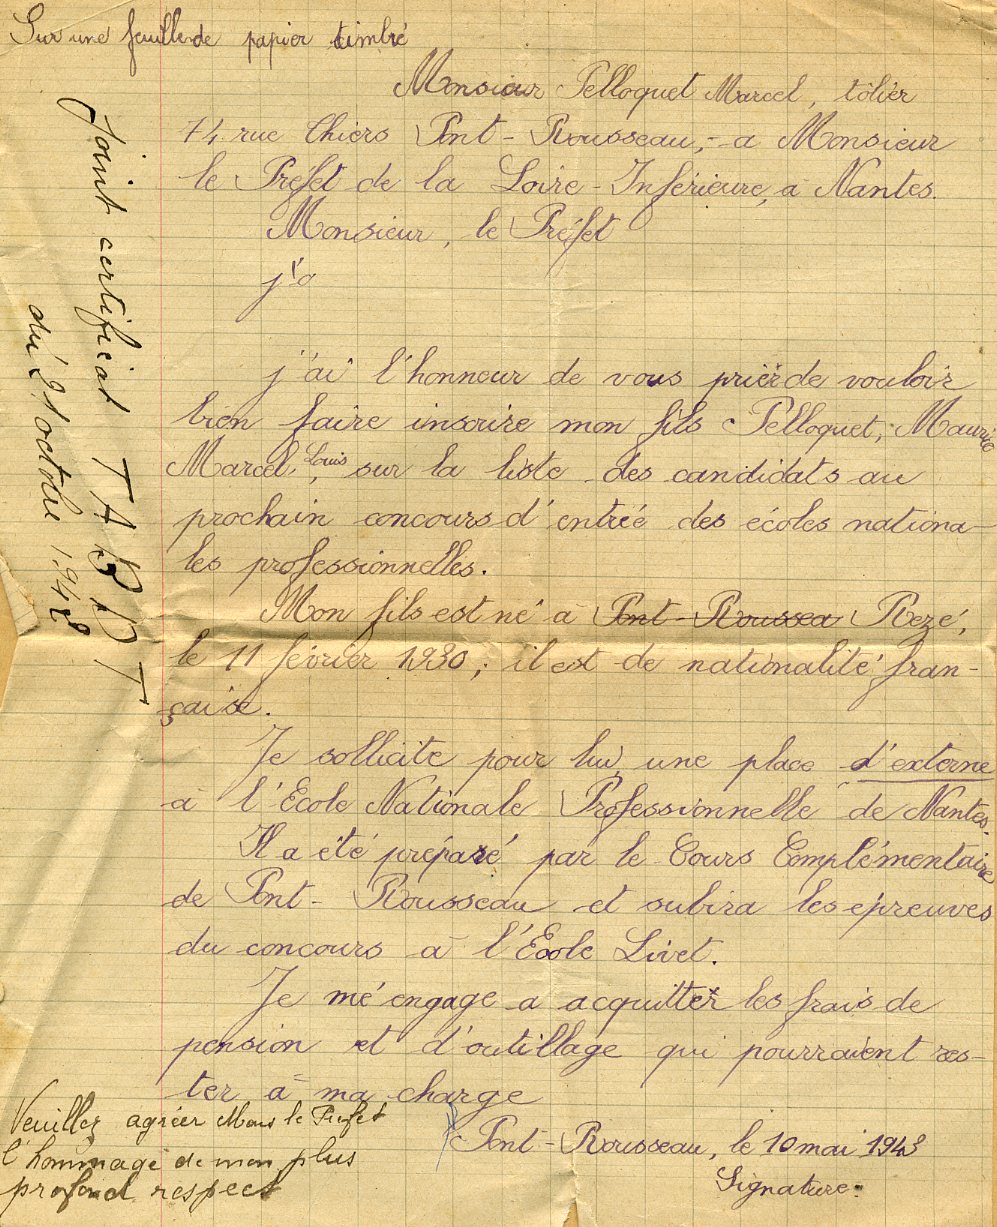 Sur une feuille de papier timbré
Monsieur Pelloquet Marcel, tôlier
74 rue Thiers Pont-Rousseau, - a Monsieur
le Préfet de la Loire-Inférieure, a Nantes.
Monsieur, le Préfet
j'a
j'ai l'honneur de vous prier de vouloir
bien faire inscrire mon fils Pelloquet, Maurice
Marcel, Louis, sur la liste des candidats au
prochain concours d'entrée des écoles nationa-
les professionnelles.
Mon fils est né à Pont-Roussea Rezé,
le 11 février 1930; il est de nationalité fran-
çaise.
Je sollicite pour lui une place d'externe
à l'Ecole Nationale Professionnelle de Nantes.
Il a été préparé par le Cours Complémentaire
de Pont-Rousseau et subira les épreuves
du concours à l'Ecole Livet.
Je m'engage a acquitter les frais de
pension et d'outillage qui pourraient res-
ter à ma charge
Pont-Rousseau, le 10 mai 1943
Signature:
Veuillez agréer Mons le Préfet
l'hommage de mon plus
profond respect
Joint certificat T A B D T
du 21 octobre 1942